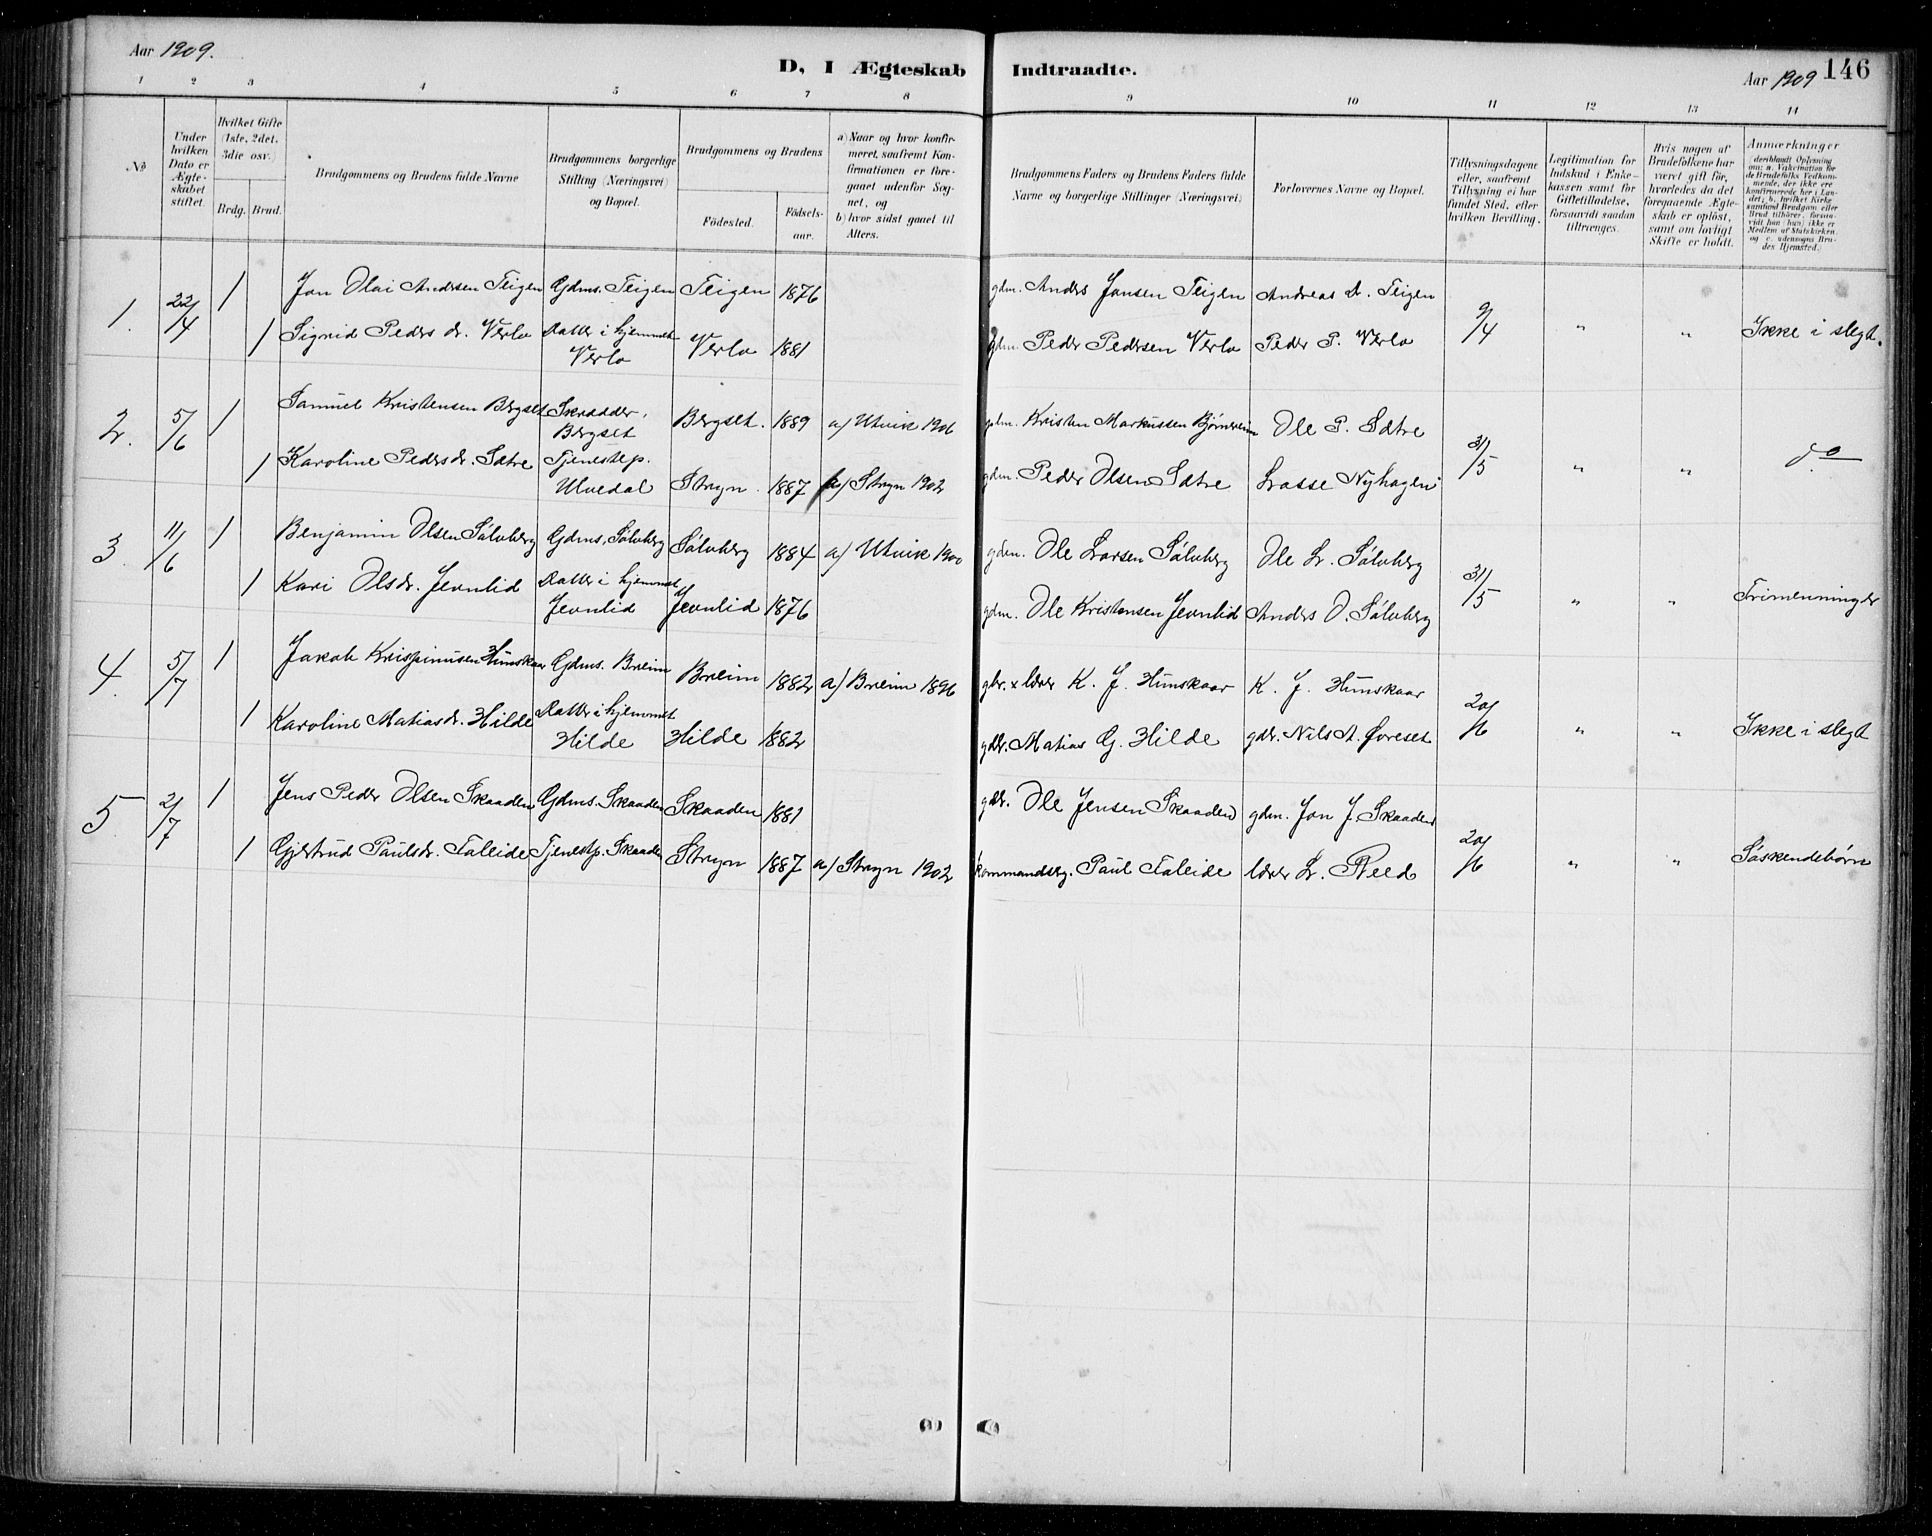 Aar 1909.
D, I Ægteskab Indtraadte.
Aar 1909
146
1 2 3 4 5 6 7 8 9 10 11 12 13 14
No
Under hvilken Dato er Ægteskabet stiftet.
Hvilket Gifte (1ste, 2det, 3die osv.)
Brdg. Brud.
Brudgommens og Brudens fulde Navne
Brudgommens borgerlige Stilling (Næringsvei) og Bopæl.
Brudgommens og Brudens
Födested. Födselsaar.
a) Naar og hvor konfirmeret, saafremt Konfirmationen er foregaaet udenfor Sognet, og
b) hvor sidst gaaet til Alters.
Brudgommens Faders og Brudens Faders fulde Navne og borgerlige Stillinger (Næringsvei)
Forlovernes Navne og Bopæl.
Tillysningsdagene eller, saafremt Tillysning ei har fundet Sted, efter hvilken Bevilling.
Legitimation for Indskud i Enkekassen samt for Giftetilladelse, forsaavidt saadan tiltrænges.
Hvis nogen af Brudefolkene har været gift för, hvorledes da det foregaaende Ægteskab er oplöst, samt om lovligt Skifte er holdt.
Anmærkninger
(deriblandt Oplysning om: a. Vakcination for de Brudefolks Vedkommende, der ikke ere konfirmerede her i Landet; b. hvilket Kirkesamfund Brudgom eller Brud tilhörer, forsaavidt han (hun) ikke er Medlem af Statskirken, og c. udensogns Brudes Hjemsted.
1. 22/4 1 Jon Olai Andersen Teigen Gdms. Teigen Teigen 1876 gdm. Anders Jonsen Teigen Andreas A. Teigen
1 Sigrid Peders dr. Verlo Datter i hjemmet Verlo Verlo 1881 gdm. Peder Pedersen Verlo Peder P. Verlo 9/4 " " Ikke i slegt.
2. 5/6 1 Samuel Kristensen Bergset Skrædder, Bergset Bergset. 1889 a/ Utvik 1906 gdm. Kristen Markussen Bjørnereim Ole P. Sætre
1 Karoline Pedersdr. Sætre Tjenestep. Ulvedal Stryn. 1887 a/ Stryn 1902 gdm. Peder Olsen Sætre Lasse Nyhagen 31/5 " " do
3. 11/6 1 Benjamin Olsen Sølvberg Gdms, Sølvberg Sølvberg 1884 a/ Utvik 1900 gdm. Ole Larsen Sølvberg Ole L. Sølvberg
1 Kari Olsdr. Jevnlid Datter i hjemmet Jevnlid Jevnlid 1876 gdm. Ole Kristensen Jevnlid Anders O. Sølvberg 31/5 " " Trimenninger
4. 5/7 1 Jakob Krispinusen Hunskaar Gdms. Breim Breim 1882 a/ Breim 1896 gbr. x lærer K. J. Hunskaar K. J. Hunskaar
1 Karoline Matiasdr. Hilde Datter i hjemmet Hilde Hilde 1882 gbr. Matias G. Hilde gbr. Nils A. Øvreset 20/6 " " Ikke i slegt
5. 2/7 1 Jens Peder Olsen Skaaden Gdms. Skaaden Skaaden 1881 gbr. Ole Jensen Skaaden gdm. Jon J. Skaaden
1 Gjertrud Paulsdr. Faleide Tjenestp. Skaaden Stryn 1887 a/ Stryn 1902 kommandserg. Paul Faleide lærer L. Reed 20/6 " " Søskendebørn